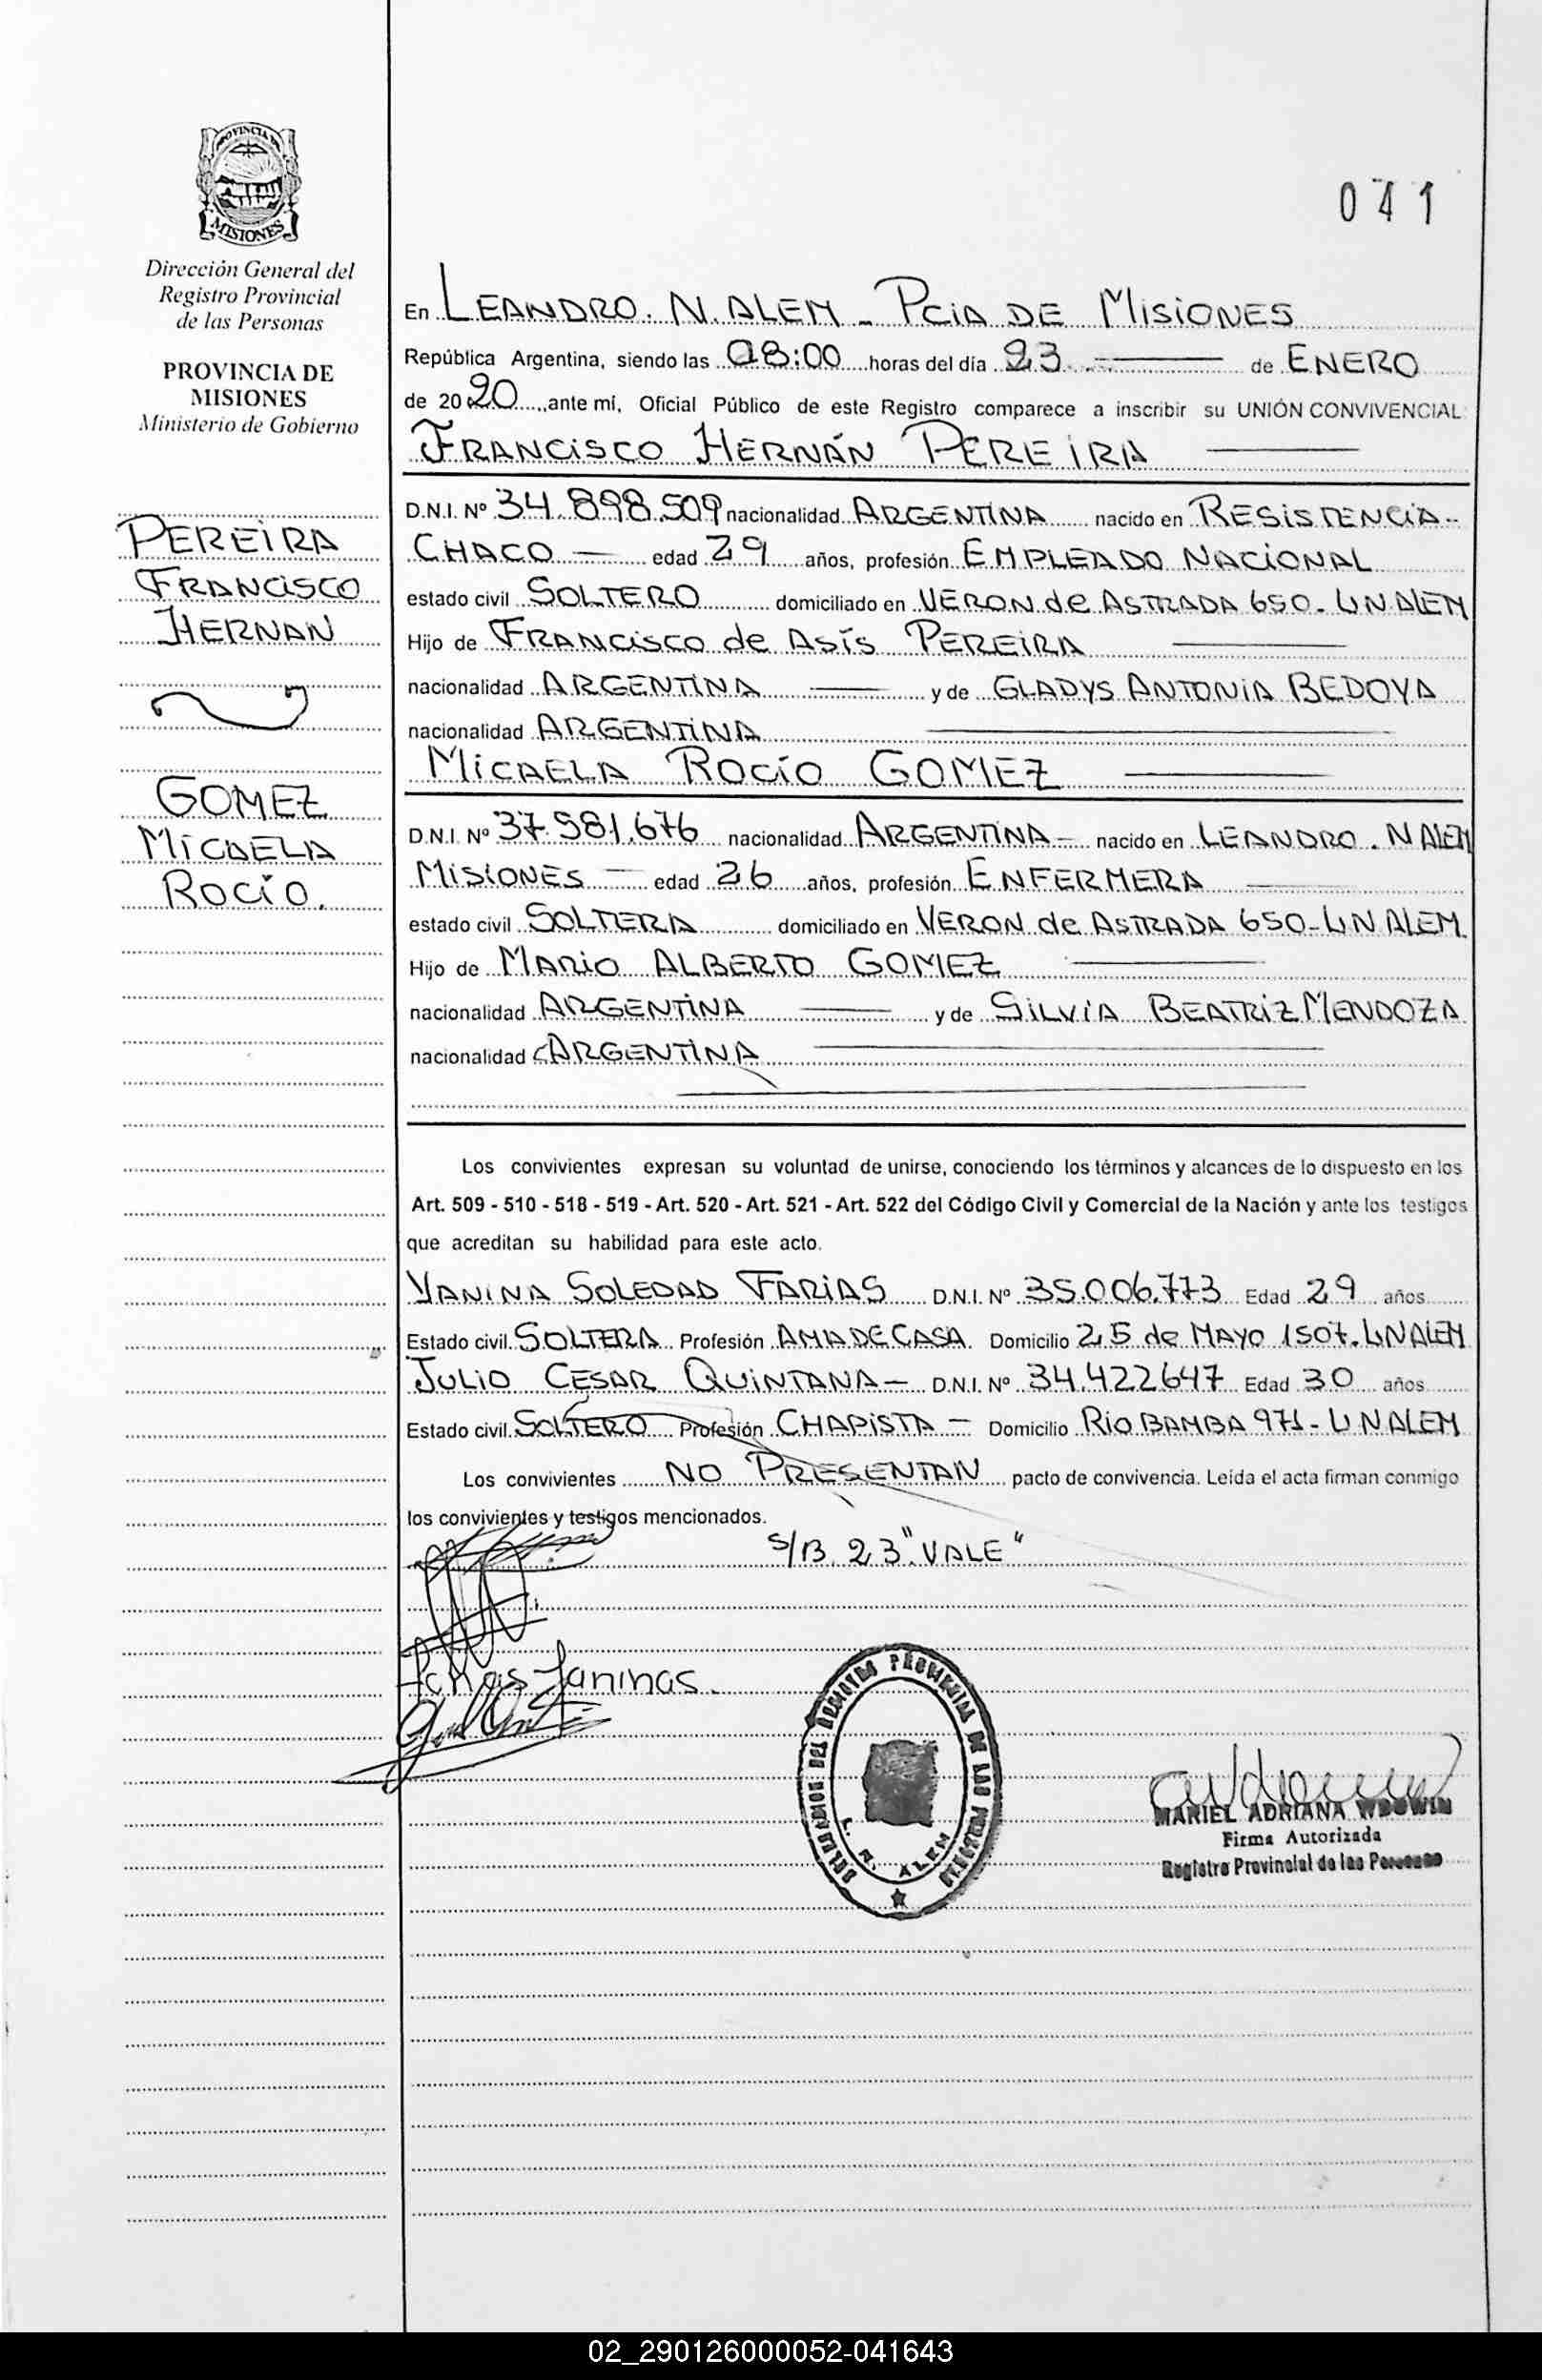 PROVINCIA DE
MISIONES
Dirección General del
Registro Provincial
de las Personas
PROVINCIA DE
MISIONES
Ministerio de Gobierno
PEREIRA
FRANCISCO
HERNAN
GOMEZ
MICAELA
ROCÍO.
041
En LEANDRO. N. ALEM - PCIA DE MISIONES
República Argentina, siendo las 08:00 horas del día 23 de ENERO
de 2020, ante mí, Oficial Público de este Registro comparece a inscribir su UNIÓN CONVIVENCIAL:
FRANCISCO HERNÁN PEREIRA
D.N.I. Nº 34.898.509 nacionalidad ARGENTINA nacido en RESISTENCIA-
CHACO - edad 29 años, profesión EMPLEADO NACIONAL
estado civil SOLTERO domiciliado en VERON de ASTRADA 650- LN ALEM
Hijo de FRANCISCO de ASÍS PEREIRA
nacionalidad ARGENTINA y de GLADYS ANTONIA BEDOYA
nacionalidad ARGENTINA
MICAELA ROCÍO GOMEZ
D.N.I. Nº 37.581.676 nacionalidad ARGENTINA - nacido en LEANDRO. N ALEM
MISIONES - edad 26 años, profesión ENFERMERA
estado civil SOLTERA domiciliado en VERON de ASTRADA 650-LN ALEM.
Hijo de MARIO ALBERTO GOMEZ
nacionalidad ARGENTINA y de SILVIA BEATRIZ MENDOZA
nacionalidad ARGENTINA
Los convivientes expresan su voluntad de unirse, conociendo los términos y alcances de lo dispuesto en los
Art. 509 - 510 - 518 - 519 - Art. 520 - Art. 521 - Art. 522 del Código Civil y Comercial de la Nación y ante los testigos
que acreditan su habilidad para este acto.
YANINA SOLEDAD FARIAS D.N.I. Nº 35.006.773 Edad 29 años
Estado civil. SOLTERA Profesión AMA DE CASA. Domicilio 25 de MAYO 1507. LN ALEM
JULIO CESAR QUINTANA - D.N.I. Nº 34.422647 Edad 30 años
Estado civil. SOLTERO Profesión CHAPISTA - Domicilio RIO BAMBA 971 - LN ALEM
Los convivientes NO PRESENTAN pacto de convivencia. Leída el acta firman conmigo
los convivientes y testigos mencionados.
S/B 23 "VALE"
DELEGACION DEL REGISTRO PROVINCIAL DE LAS PERSONAS
L. N. ALEM
MARIEL ADRIANA WDOWIN
Firma Autorizada
Registro Provincial de las Personas
02_290126000052-041643